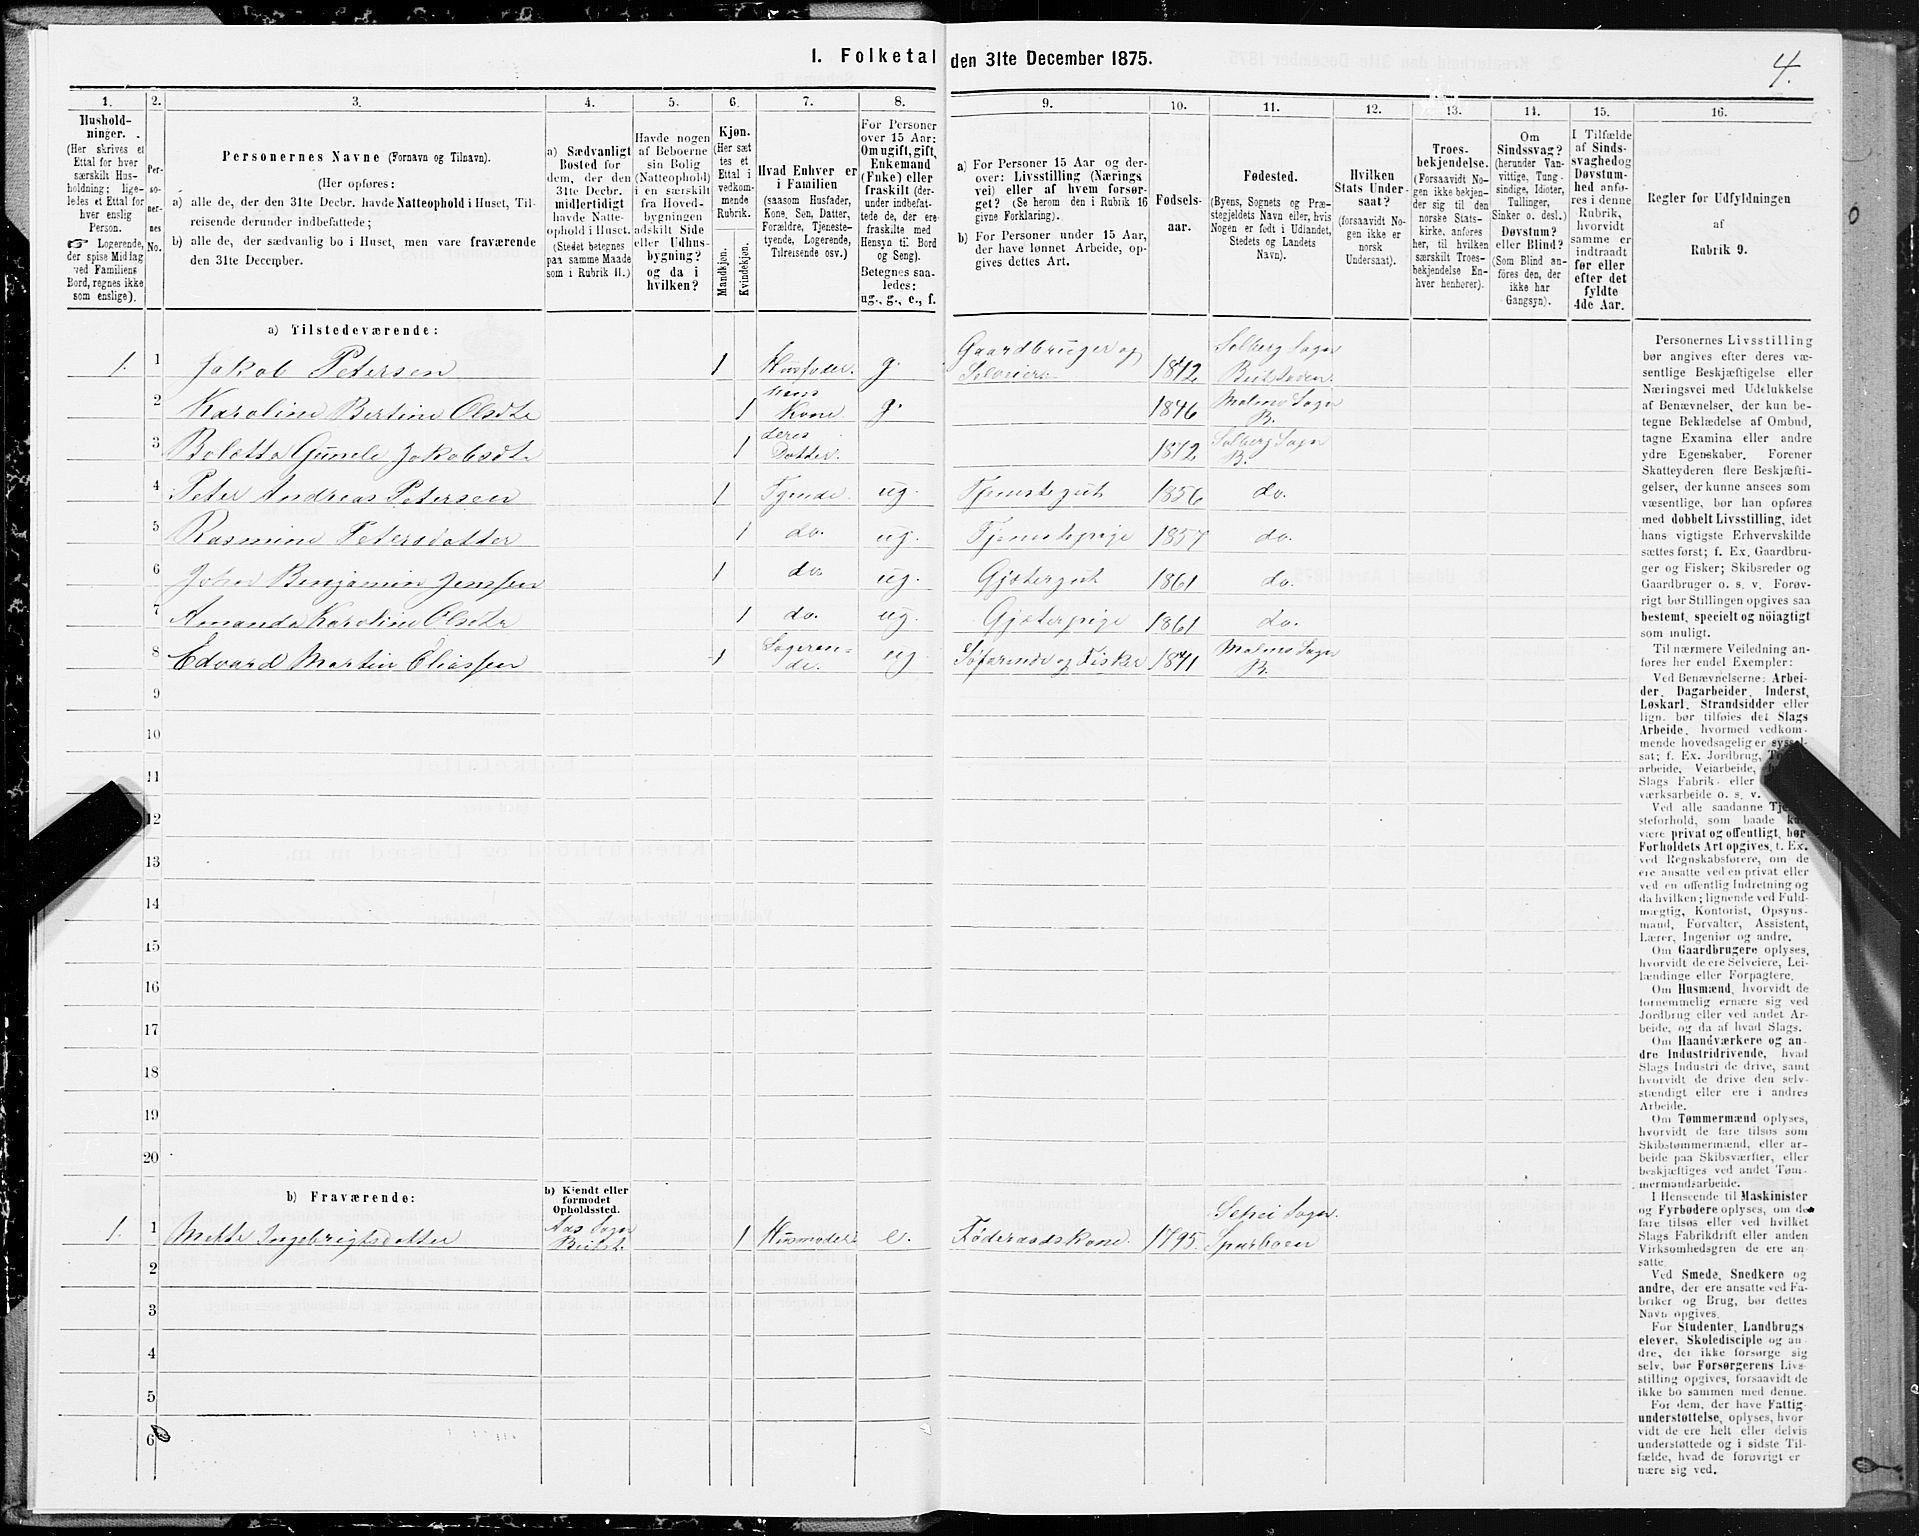 I. Folketal den 31te December 1875.
4.
1.
2.
3.
4.
5.
6.
7.
8.
9.
10.
11.
12.
13.
14.
15.
16.
Hushold-
ninger.
(Her skrives et
Ettal for hver
særskilt Hus-
holdning; lige-
ledes et Ettal for
hver enslig
Person.
☞ Logerende,
der spise Middag
ved Familiens
Bord, regnes ikke
som enslige).
Per-
so-
ner-
nes
No.
Personernes Navne (Fornavn og Tilnavn).
(Her opføres:
a) alle de, der den 31te Decbr. havde Natteophold i Huset, Til-
reisende derunder indbefattede;
b) alle de, der sædvanlig bo i Huset, men vare fraværende
den 31te December.
a) Sædvanligt
Bosted for
dem, der den
31te Decbr.
midlertidigt
havde Natte-
ophold i Huset.
(Stedet betegnes
paa samme Maade
som i Rubrik 11.)
Havde nogen
af Beboerne
sin Bolig
(Natteophold)
i en særskilt
fra Hoved-
bygningen
adskilt Side
eller Udhus-
bygning?
og da i
hvilken?
Kjøn.
(Her sæt
tes et
Ettal i
vedkom-
mende
Rubrik.
Mandkjøn.
Kvindekjøn.
Hvad Enhver er
i Familien
(saasom Husfader,
Kone, Søn, Datter,
Forældre, Tjeneste-
tyende, Logerende,
Tilreisende osv.)
For Personer
over 15 Aar:
Om ugift, gift,
Enkemand
(Enke) eller
fraskilt (der-
under indbefat-
tede de, der ere
fraskilte med
Hensyn til Bord
og Seng).
Betegnes saa-
ledes:
ug., g., e., f.
a) For Personer 15 Aar og der-
over: Livsstilling (Nærings
vei) eller af hvem forsør-
get? (Se herom den i Rubrik 16
givne Forklaring).
b) For Personer under 15 Aar,
der have lønnet Arbeide, op-
gives dettes Art.
Fødsels-
aar.
Fødested.
(Byens, Sognets og Præ-
stegjeldets Navn eller, hvis
Nogen er født i Udlandet,
Stedets og Landets
Navn).
Hvilken
Stats Under-
saat?
(forsaavidt No-
gen ikke er
norsk
Undersaat).
Troes-
bekjendelse.
(Forsaavidt No-
gen ikke bekjen-
der sig til den
norske Stats-
kirke, anføres
her, til hvilken
særskilt Troes-
bekjendelse En-
hver henhører).
Om
Sindssvag?
(herunder Van-
vittige, Tung-
sindige, Idioter,
Tullinger,
Sinker o. desl.)
Døvstum?
eller Blind?
(Som Blind an-
føres den, der
ikke har
Gangsyn).
I Tilfælde
af Sinds-
svaghed og
Døvstum-
hed anfø-
res i denne
Rubrik,
hvorvidt
samme er
indtraadt
før eller
efter det
fyldte
4de Aar.
Regler for Udfyldningen
af
Rubrik 9.
a) Tilstedeværende:
1. 1 Jakob Petersen 1 Husfader. g. Gaardbruger og Selveier 1842 Solberg Sogn Beitstaden.
2 Karoline Bertine Olsdtr 1 hans Kone. g. 1846 Malmo Sogn B.
3 Boletta Gunele Jakobsdtr 1 deres Datter. 1872 Solberg Sogn B.
4 Peter Andreas Petersen 1 Tjende. ug. Tjenstegut 1856 do.
5 Rasmine Petersdatter 1 do. ug. Tjenstepige 1857 do.
6 Johan Benjamin Jenssen 1 do. ug. Gjætergut 1861 do.
7 Amanda Karoline Olsdtr 1 do. ug. Gjæterpige 1861 do.
8 Edvard Martin Eliassen 1 Logeren-de. ug Søfarende og Fisker 1841 Malmo Sogn B.
9
10
11
12
13
14
15
16
17
18
19
20
b) Fraværende:
b) Kjendt eller
formodet
Opholdssted.
1. 1 Mette Ingebrigtsdatter Aas Sogn Beitst. 1 Husmoder e. Føderaadskone. 1795. Sogn. Sparboen
2
3
4
5
6
Personernes Livsstilling
bør angives efter deres væ-
sentlige Beskjæftigelse eller
Næringsvei med Udelukkelse
af Benævnelser, der kun be-
tegne Beklædelse af Ombud,
tagne Examina eller andre
ydre Egenskaber. Forener
Skatteyderen flere Beskjæfti-
gelser, der kunne ansees som
væsentlige, bør han opføres
med dobbelt Livsstilling, idet
hans vigtigste Erhvervskilde
sættes først; f. Ex. Gaardbru-
ger og Fisker; Skibsreder og
Gaardbruger o. s. v. Forøv-
rigt bør Stillingen opgives saa
bestemt, specielt og nöiagtigt
som muligt.
Til nærmere Veiledning an-
føres her endel Exempler:
Ved Benævnelserne: Arbei-
der, Dagarbeider, Inderst,
Løskarl, Strandsidder eller
lign. bør tilføies det Slags
Arbeide, hvormed vedkom-
mende hovedsagelig er syssel-
sat; f. Ex. Jordbrug,
arbeide, Veiarbeide,
Slags Fabrik- eller
værksarbeide o. s. v.
Ved alle saadanne
steforhold, som baade
være privat og offentligt, bør
Forholdets Art opgives, t. Ex.
ved Regnskabsførere, om de
ere ansatte ved en privat eller
ved en offentlig Indretning og
da hvilken; lignende ved Fuld-
mægtig, Kontorist, Opsyns-
mand, Forvalter, Assistent,
Lærer, Ingeniør og andre.
Om Gaardbrugere oplyses,
hvorvidt de ere Selveiere, Lei-
lændinge eller Forpagtere.
Om Husmænd, hvorvidt de
fornemmelig ernære sig ved
Jordbrug eller ved andet Ar-
beide, og da af hvad Slags.
Om Haandværkere og an-
dre Industridrivende, hvad
Slags Industri de drive, samt
hvorvidt de drive den selv-
stændigt eller ere i andres
Arbeide.
Om Tømmermænd oplyses,
hvorvidt de fare tilsøs som
Skibstømmermænd, eller ar-
beide paa Skibsværfter, eller
beskjæftiges ved andet Tøm-
mermandsarbeide.
I Henseende til Maskinister
og Fyrbødere oplyses, om de
fare tilsøs eller ved hvilket
Slags Fabrikdrift eller anden
Virksomhedsgren de ere an-
satte.
Ved Smede, Snedkere og
andre, der ere ansatte ved Fa-
briker og Brug, bør dettes
Navn opgives.
For Studenter, Landbrugs
elever, Skoledisciple og an-
dre, der ikke forsørge sig
selv, bør Forsørgerens Livs-
stilling opgives, forsaavidt de
ikke bo sammen med denne.
For dem, der have Fattig
understøttelse, oplyses, hvor
vidt de ere helt eller delvis
understøttede og i sidste Til-
fælde, hvad de forøvrigt er
nære sig ved.